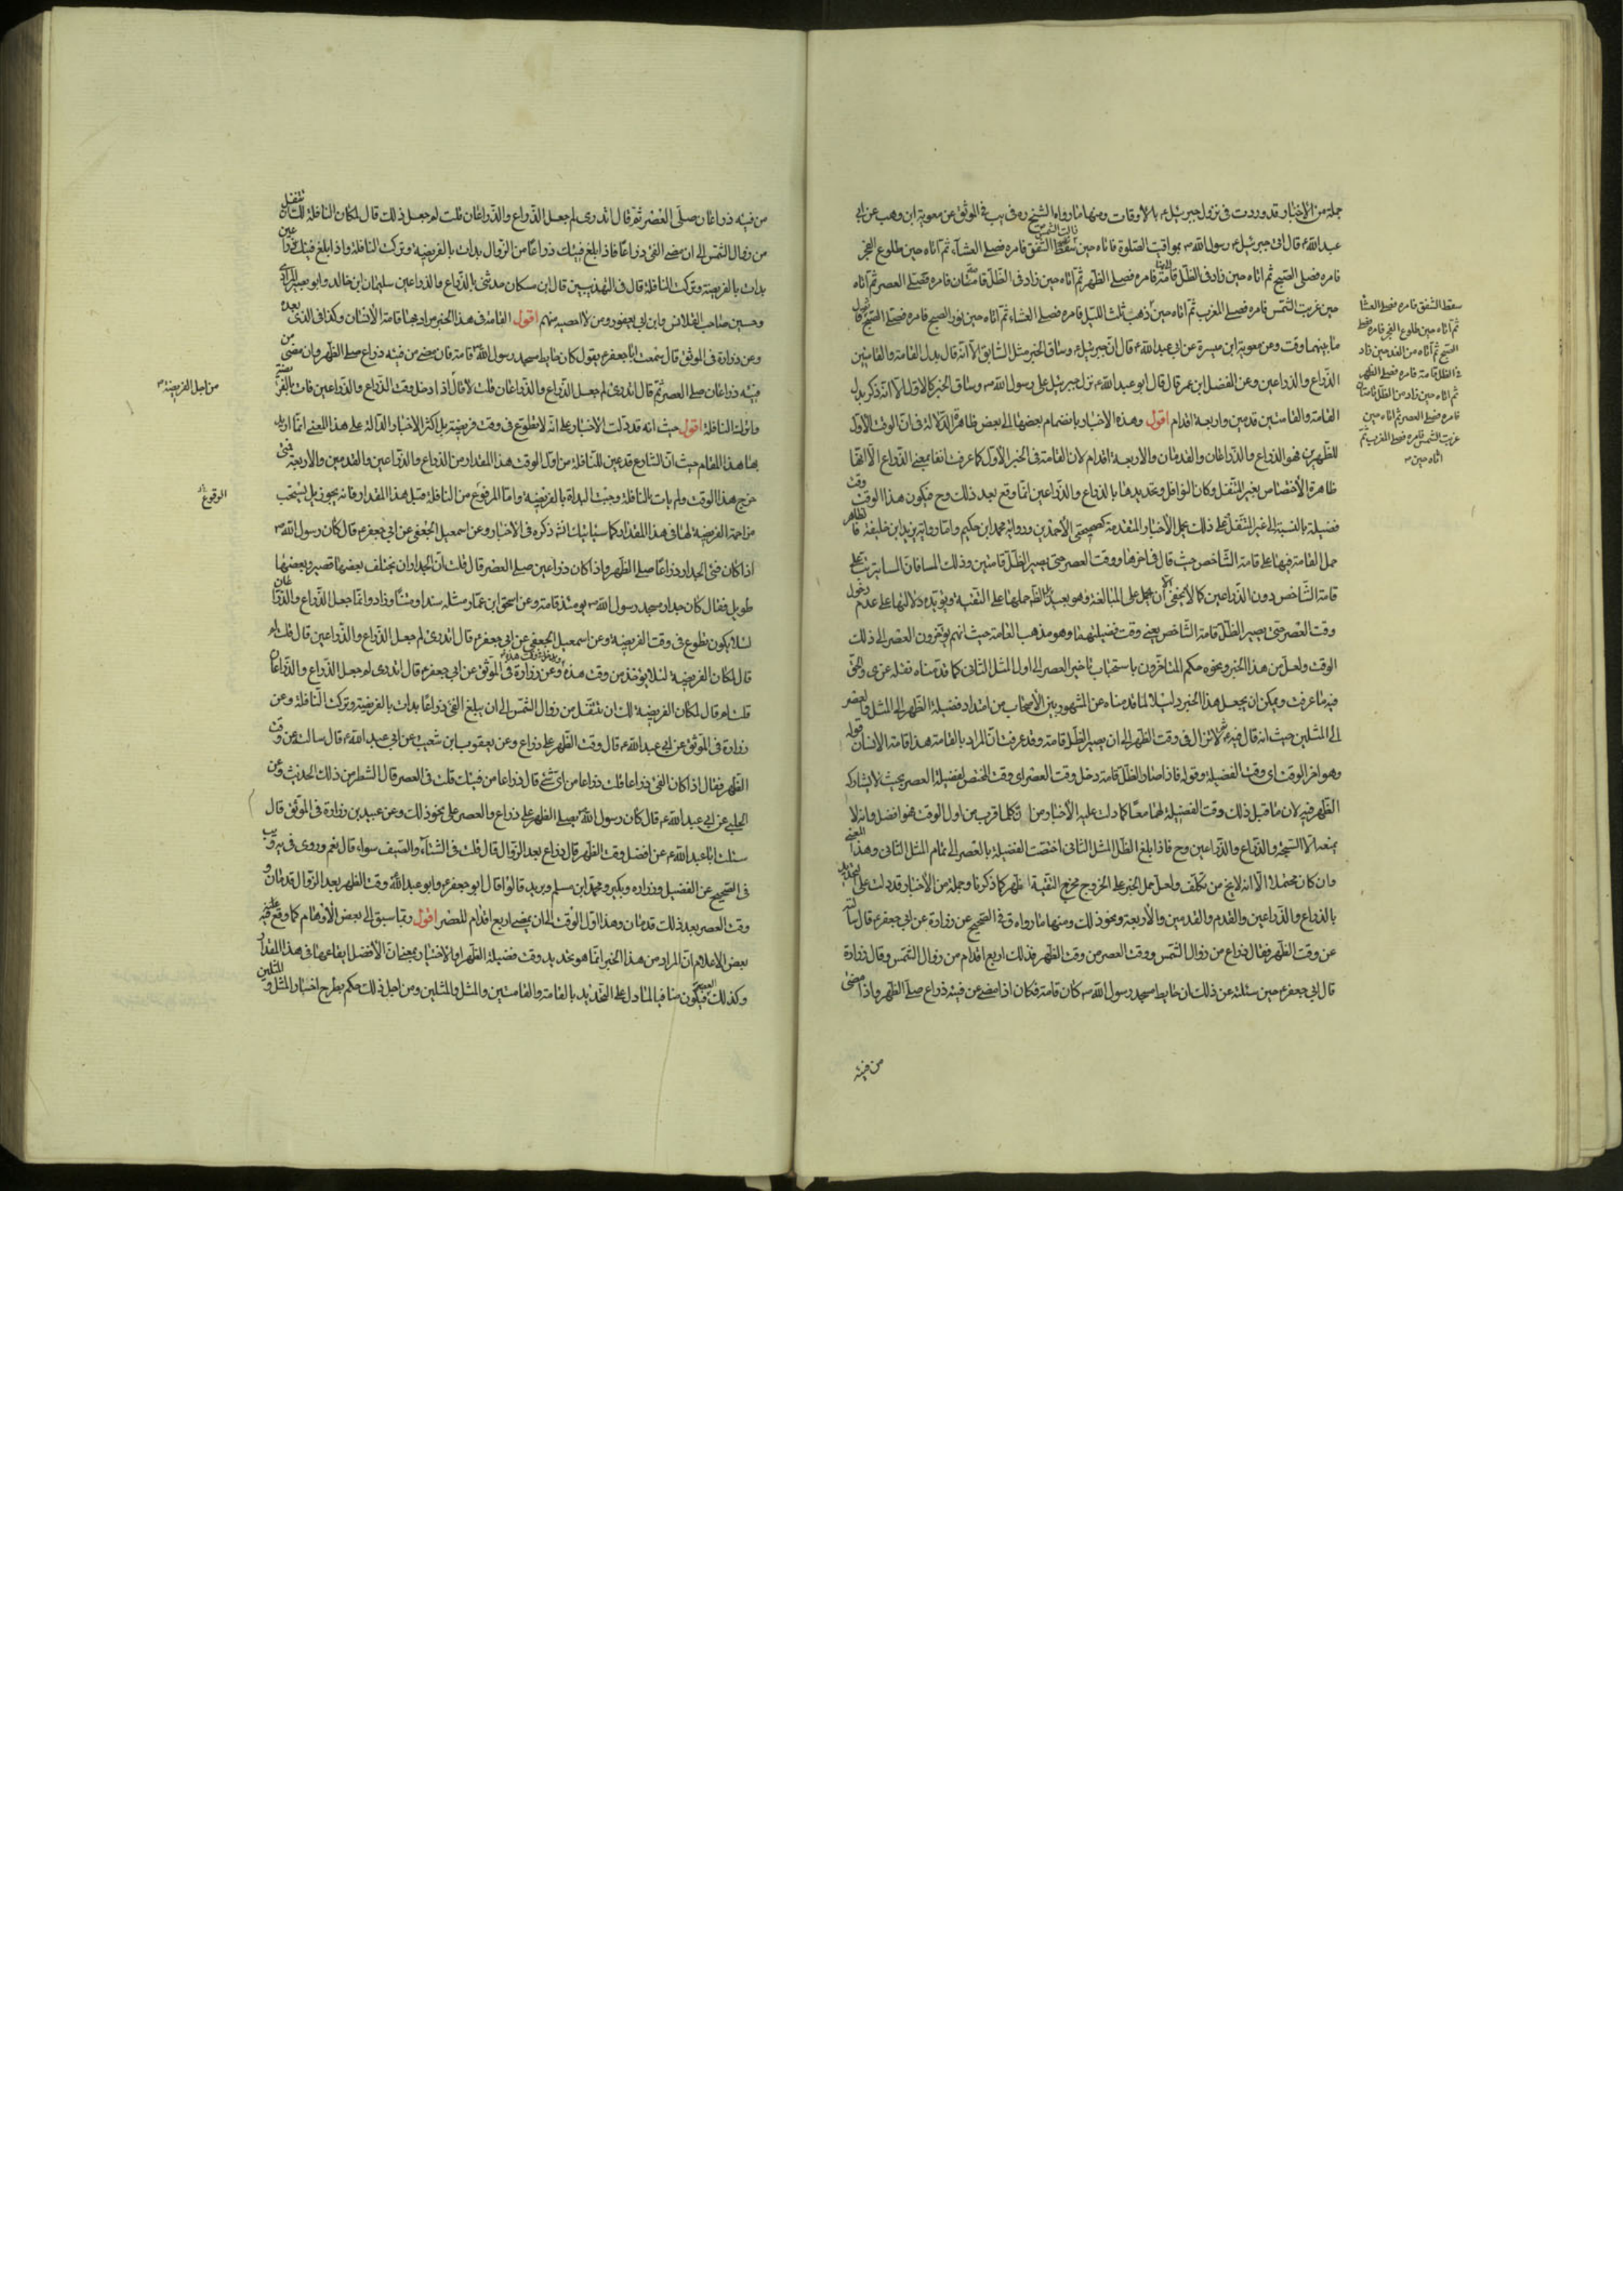 جملة من الاخبار قد وردت فى نزول جبرئيلؑ بالاوقات ومنها ما رواه الشيخ ره فى يب فى الموثق عن معوية ابن وهب عن ابى
عبد اللهؑ قال اتى جبرئيلؑ رسول اللهص بمواقيت الصلوة فاتاه حين سقط الشفق فامره فصلى العشآء ثم اتاه حين طلوع الفجر
فامره فصلى الصبح ثم اتاه حين زاد فى الظل قامة فامره فصلى الظهر ثم اتاه حين زاد فى الظل قامتان فامره فصلى العصر ثم اتاه
حين غربت الشمس فامره فصلى المغرب ثم اتاه حين ذهب ثلث الليل فامره فصلى العشاء ثم اتاه حين نور الصبح فامره فصلى الصبح
ما بينهما وقت وعن معوية ابن ميسرة عن ابى عبد اللهؑ قال ان جبرئيلؑ وساق الخبر مثل السابق الا انه قال بدل القامة والقامتين
الذراع والذراعين وعن المفضل ابن عمر قال قال ابو عبد اللهؑ نزل جبرئيل على رسول اللهص وساق الخبر كالاول الا انه ذكر بدل
القامة والقامتين قدمين واربعة اقدام اقول وهذه الاخبار بانضمام بعضها الى بعض ظاهرة الدلالة فى ان الوقت الاول
للظهرين هو الذراع والذراعان والقدمان والاربعة اقدام لان القامة فى الخبر الاول كما عرفت انفا بمعنى الذراع الا انها
ظاهرة الاختصاص بغير المتنفل وكان النوافل وتحديدها بالذراع والذراعين انما وقع بعد ذلك وح فيكون هذا الوقت وقت
فضيلة بالنسبة الى غير المتنفل
حمل القامة فيها على قامة الشاخص حيث قال فى اخرها ووقت العصر حتى يصير الظل قامتين وذلك المسا فان
قامة الشاخص دون الذراعين كما لا يخفى
وقت العصر حتى يصير الظل قامة الشاخص يعنى وقت فضيلتهما وهو مذهب العامة حيث انهم يؤخرون العصر الى ذلك
الوقت ولعل من هذا الخبر ونحوه حكم المتاخرون باستحباب تاخير العصر الى اول المثل الثانى كما قدمناه
فيه ما عرفت ويمكن ان يجعل هذا الخبر دليلا لما قدمناه عن المشهور بين الاصحاب من امتداد فضيلة الظهر الى المثل والعصر
الى المثلين حيث انه قال فيه لا تزال فى وقت الظهر الى ان يصير الظل قامة وقد عرفت ان المراد بالقامة هذا قامة الانسان
وهو اخر الوقت اى وقت الفضيلة وقوله فاذا صار الظل قامة دخل وقت العصر اى وقت المختص لفضيلة العصر بحيث لا يشاركه
الظهر فيه لان ما قبل ذلك وقت الفضيلة لهما معا كما دلت عليه الاخبار من ان كلما قرب من اول الوقت فهو افضل وانه لا
يمنعه الا السبحة والذراع والذراعين وح فاذا بلغ الظل المثل الثانى اختصت الفضيلة بالعصر الى تمام المثل الثانى وهذا المعنى
وان كان محتملا الا انه لا يخ من تكلف ولعل حمل الخبر على الخروج مخرج التقية اظهر كما ذكرنا وجملة من الاخبار قد دلت على التحديد
بالذراع والذراعين والقدم والقدمين والاربعة ونحو ذلك ومنها ما رواه ق فى الصحيح عن زرارة عن ابى جعفرؑ قال سالته
عن وقت الظهر فقال ذراع من زوال الشمس ووقت العصر من وقت الظهر فذلك اربع اقدام من زوال الشمس وقال زرارة
قال لى ابى جعفرؑ حين سئلته عن ذلك ان حايط مسجد رسول اللهص كان قامة فكان اذا مضى من فيئه ذراع صلى الظهر واذا مضى
من فيئه
سقط الشفق فامره فصلى العشا
ثم اتاه حين طلوع الفجر فامره فصلى
الصبح ثم اتاه من الغد حين زاد
فى الظل قامة فامره فصلى الظهر
ثم اتاه حين زاد من الظل قامتان
فامره فصلى العصر ثم اتاه حين
غربت الشمس فامره فصلى المغرب ثم
اتاه حين
من فيئه ذراعان صلى العصر ثم قال اتدرى لم جعل الذراع والذراعان قلت لم جعل ذلك قال لمكان النافلة لك ان تتنفل
من زوال الشمس الى ان يمضى الفئ ذراعا فاذا بلغ فيئك ذراعا من الزوال بدات بالفريضة وتركت النافلة واذا بلغ فيئك ذراعين
بدات بالفريضة وتركت النافلة قال فى التهذيبين قال ابن مسكان حدثنى بالذراع والذراعين سليمان ابن خالد وابو بصير المرادى
وحسين صاحب القلانس وابن ابى يعفور ومن لا احصيه منهم اقول القامة فى هذا الخبر مراد بها قامة الانسان وكذا فى الذى بعده
وعن زرارة فى الموثق قال سمعت ابا جعفرؑ يقول كان حايط مسجد رسول اللهص قامة فان مضى من فيئه ذراع صلى الظهر وان مضى من
فيئه ذراعان صلى العصر ثم قال اتدرى لم جعل الذراع والذراعان قلت لا قال اذا دخل وقت الذراع والذراعين
اقول حيث انه قد دلت الاخبار على انه لا تطوع فى وقت فريضة بل اكثر الاخبار الدالة على هذا المعنى انما اريد
بها هذا المقام حيث ان الشارع قد عين للنافلة من اول الوقت هذا المقدار من الذراع والذراعين والقدمين والاربعة
خرج هذا الوقت ولم يات بالنافلة وجبت البداة بالفريضة واما المرفوع من النافلة قبل هذا المقدار فانه يجوز بل يستحب
مزاحمة الفريضة لها فى هذا المقدار وكما سياتيك انش ذكره فى الاخبار وعن اسمعيل الجعفى عن ابى جعفرؑ قال كان رسول اللهص
اذا كان فئ الجدار ذراعا صلى الظهر واذا كان ذراعين صلى العصر قال قلت ان الجدار ان يختلف بعضها قصير وبعضها
طويل فقال كان جدار مسجد رسول اللهص يومئذ قامة وعن اسحق ابن عمار مثله سندا ومتنا وزاد وانما جعل الذراع والذراعان
لئلا يكون تطوع فى وقت الفريضة وعن اسمعيل الجعفى عن ابى جعفرؑ قال اتدرى لم جعل الذراع والذراعين قال قلت لم
قال لمكان الفريضة لئلا يؤخذ من وقت هذه وعن زرارة فى الموثق عن ابى جعفرؑ قال اتدرى لم جعل الذراع والذراعان
قلت لم قال لمكان الفريضة لك ان تتنفل من زوال الشمس الى ان يبلغ الفئ ذراعا بدات بالفريضة وتركت النافلة وعن
زرارة فى الموثق عن ابى عبد اللهؑ قال وقت الظهر على ذراع وعن يعقوب ابن شعيب عن ابى عبد اللهؑ قال سالته عن وقت
الظهر فقال اذا كان الفئ ذراعا قلت ذراعا من اى شئ قال ذراعا من فيئك قلت فى العصر قال الشطر من ذلك الحديث وعن
الحلبى عن ابى عبد اللهؑ قال كان رسول اللهص يصلى الظهر على ذراع والعصر على نحو ذلك وعن عبيد بن زرارة فى الموثق قال
سئلت ابا عبد اللهؑ عن افضل وقت الظهر قال ذراع بعد الزوال قال قلت فى الشتآء والصيف سواء قال نعم وروى فى يه ويب
فى الصحيح عن الفضيل وزراره وبكير ومحمد ابن مسلم وبريد قالوا قال ابو جعفرؑ وابو عبد اللهؑ وقت الظهر بعد الزوال قدمان و
وقت العصر بعد ذلك قدمان وهذا اول الوقت الى ان يمضى اربع اقدام للعصر اقول وربما سبق الى بعض الاوهام كما وقع فيه
بعض الاعلام ان المراد من هذا الخبر انما هو تحديد وقت فضيلة الظهر او الاختيار بمعنى ان الافضل ايقاعها فى هذا المقدار
وكذلك العصر فيكون منافيا لما دل على التحديد بالقامة والقامتين والمثل والمثلين ومن اجل ذلك حكم بطرح اخبار المثل والمثلين
من اجل الفريضة
الوقوع